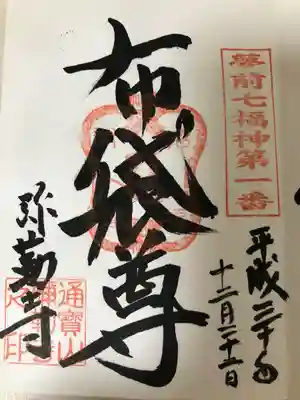 夢前七福神第一番
平成三十年
十二月二十二日
布袋尊
弥勒寺
通寳山
弥勒寺
之印